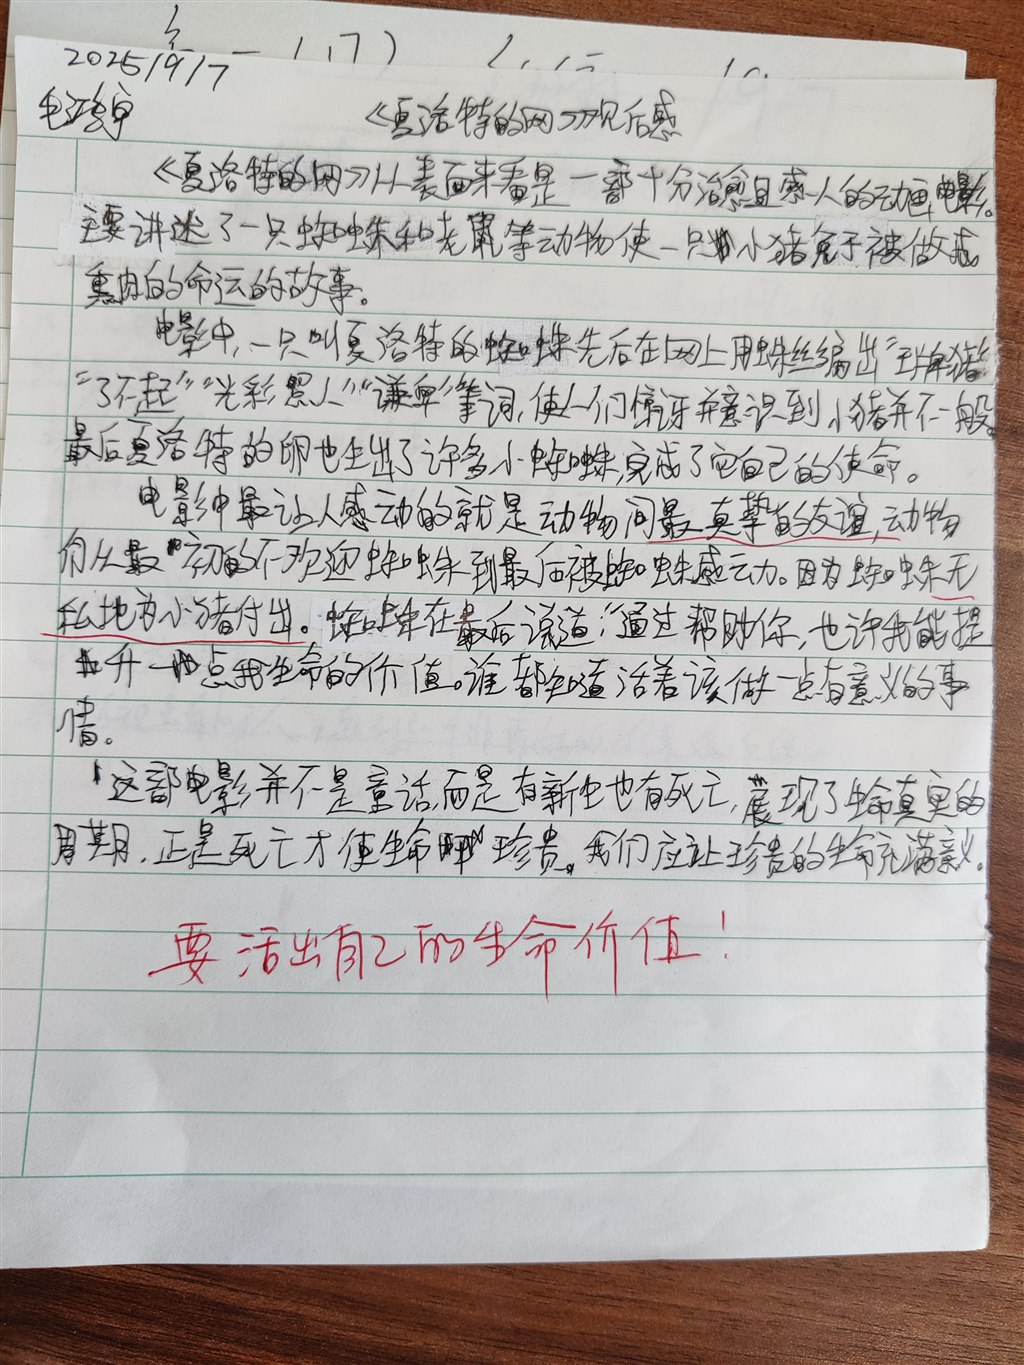 2025/9/7
《夏洛特的网》观后感
《夏洛特的网》从表面来看是一部十分治愈且感人的动画电影。
主要讲述了一只蜘蛛和老鼠等动物使一只小猪免于被做成
熏肉的命运的故事。
电影中,一只叫夏洛特的蜘蛛先后在网上用蛛丝编出"王牌猪"
"了不起""光彩照人""谦卑"等词,使人们惊讶并意识到小猪并不一般。
最后夏洛特的卵也生出了许多小蜘蛛,完成了它自己的使命。
电影中最让人感动的就是动物间最真挚的友谊,动物
们从最初的不欢迎蜘蛛到最后被蜘蛛感动。因为蜘蛛无
私地为小猪付出。蜘蛛在最后说道:"通过帮助你,也许我能提
升一点我生命的价值。谁都知道活着该做一点有意义的事
情。
这部电影并不是童话,而是有新生也有死亡,展现了生命真实的
周期,正是死亡才使生命珍贵。我们应让珍贵的生命充满意义。
要活出自己的生命价值!